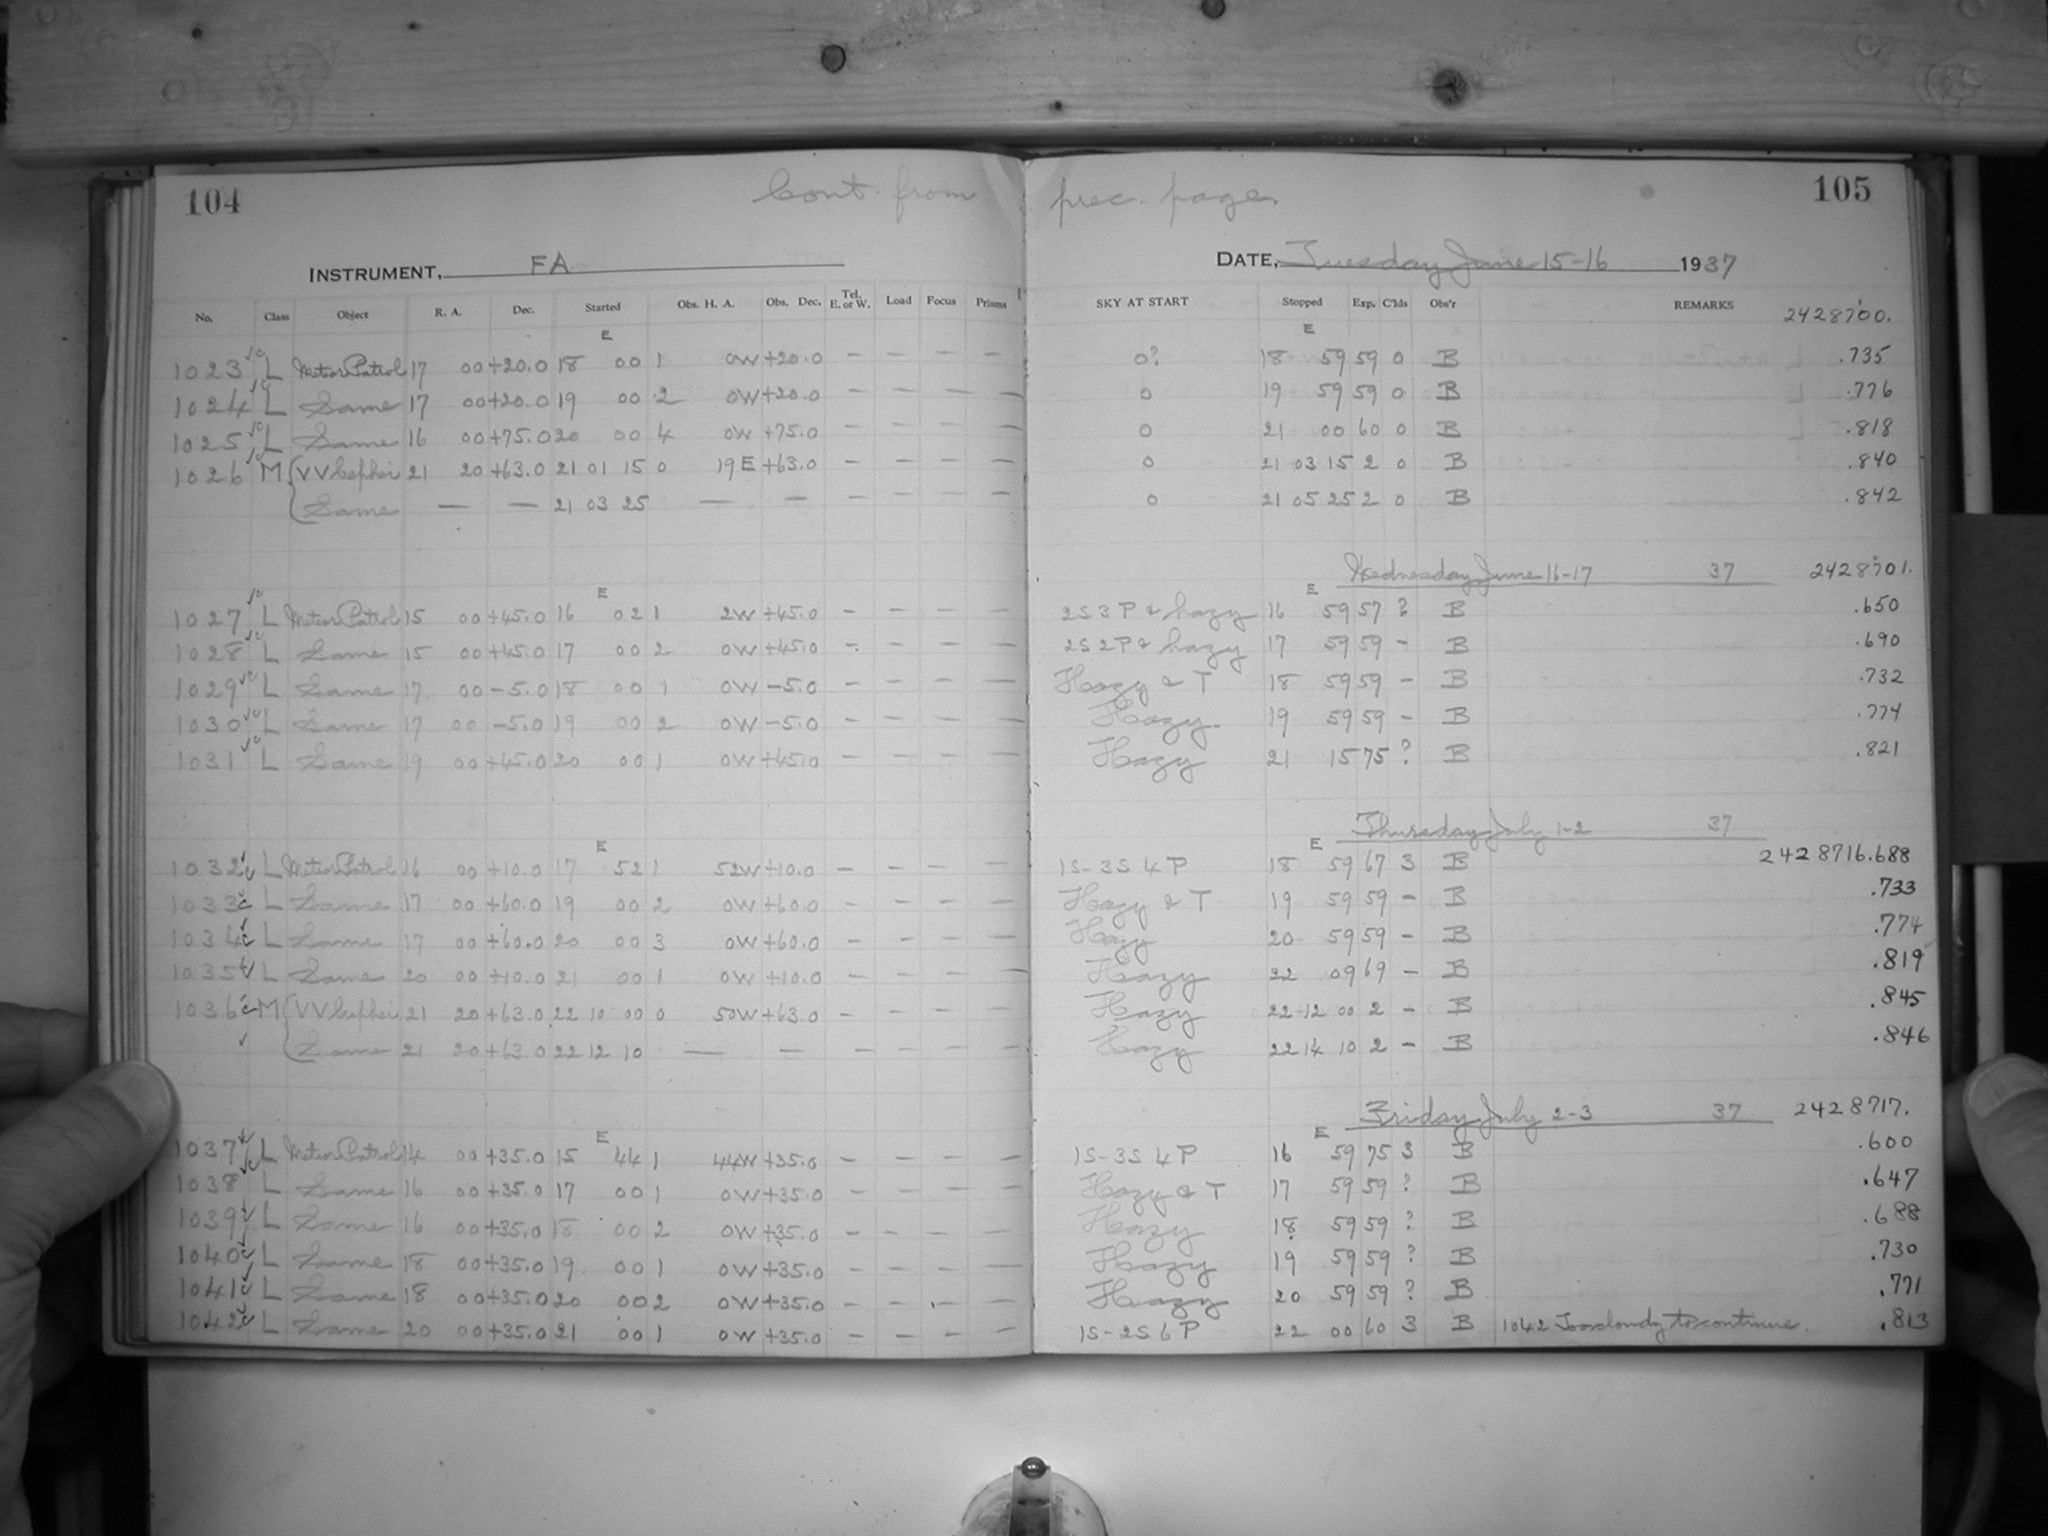 104 Cont. from prec. page 105
INSTRUMENT, FA DATE, Tuesday June 15-16 1937
No. Class Object R. A. Dec. Started Obs. H. A. Obs. Dec. Tel. E. or W. Load Focus Prisms SKY AT START Stopped Exp. C'lds Obs'r REMARKS 2428700.
E E
1023 L Meteor Patrol 17 00 +20.0 18 00 1 0W +20.0 – – – – 0? 18 59 59 0 B .735
1024 L Same 17 00 +20.0 19 00 2 0W +20.0 – – – – 0 19 59 59 0 B .776
1025 L Same 16 00 +75.0 20 00 4 0W +75.0 – – – – 0 21 00 60 0 B .818
1026 M VV Cephei 21 20 +63.0 21 01 15 0 19E +63.0 – – – – 0 21 03 15 2 0 B .840
Same — — 21 03 25 — – – – – – 0 21 05 25 2 0 B .842
Wednesday June 16-17 37 2428701.
E E
1027 L Meteor Patrol 15 00 +45.0 16 02 1 2W +45.0 – – – – 2S 3P & hazy 16 59 57 ? B .650
1028 L Same 15 00 +45.0 17 00 2 0W +45.0 – – – – 2S 2P & hazy 17 59 59 – B .690
1029 L Same 17 00 -5.0 18 00 1 0W -5.0 – – – – Hazy & T 18 59 59 – B .732
1030 L Same 17 00 -5.0 19 00 2 0W -5.0 – – – – Hazy 19 59 59 – B .774
1031 L Same 19 00 +45.0 20 00 1 0W +45.0 – – – – Hazy 21 15 75 ? B .821
Thursday July 1-2 37
E E
1032 L Meteor Patrol 16 00 +10.0 17 52 1 52W +10.0 – – – – 1S-3S 4P 18 59 67 3 B 2428716.688
1033 L Same 17 00 +60.0 19 00 2 0W +60.0 – – – – Hazy & T 19 59 59 – B .733
1034 L Same 17 00 +60.0 20 00 3 0W +60.0 – – – – Hazy 20 59 59 – B .774
1035 L Same 20 00 +10.0 21 00 1 0W +10.0 – – – – Hazy 22 09 69 – B .819
1036 M VV Cephei 21 20 +63.0 22 10 00 0 50W +63.0 – – – – Hazy 22 12 00 2 – B .845
Same 21 20 +63.0 22 12 10 — – – – – – Hazy 22 14 10 2 – B .846
Friday July 2-3 37 2428717.
E E
1037 L Meteor Patrol 14 00 +35.0 15 44 1 44W +35.0 – – – – 1S-3S 4P 16 59 75 3 B .600
1038 L Same 16 00 +35.0 17 00 1 0W +35.0 – – – – Hazy & T 17 59 59 ? B .647
1039 L Same 16 00 +35.0 18 00 2 0W +35.0 – – – – Hazy 18 59 59 ? B .688
1040 L Same 18 00 +35.0 19 00 1 0W +35.0 – – – – Hazy 19 59 59 ? B .730
1041 L Same 18 00 +35.0 20 00 2 0W +35.0 – – – – Hazy 20 59 59 ? B .771
1042 L Same 20 00 +35.0 21 00 1 0W +35.0 – – – – 1S-2S 6P 22 00 60 3 B 1042 Too cloudy to continue. .813